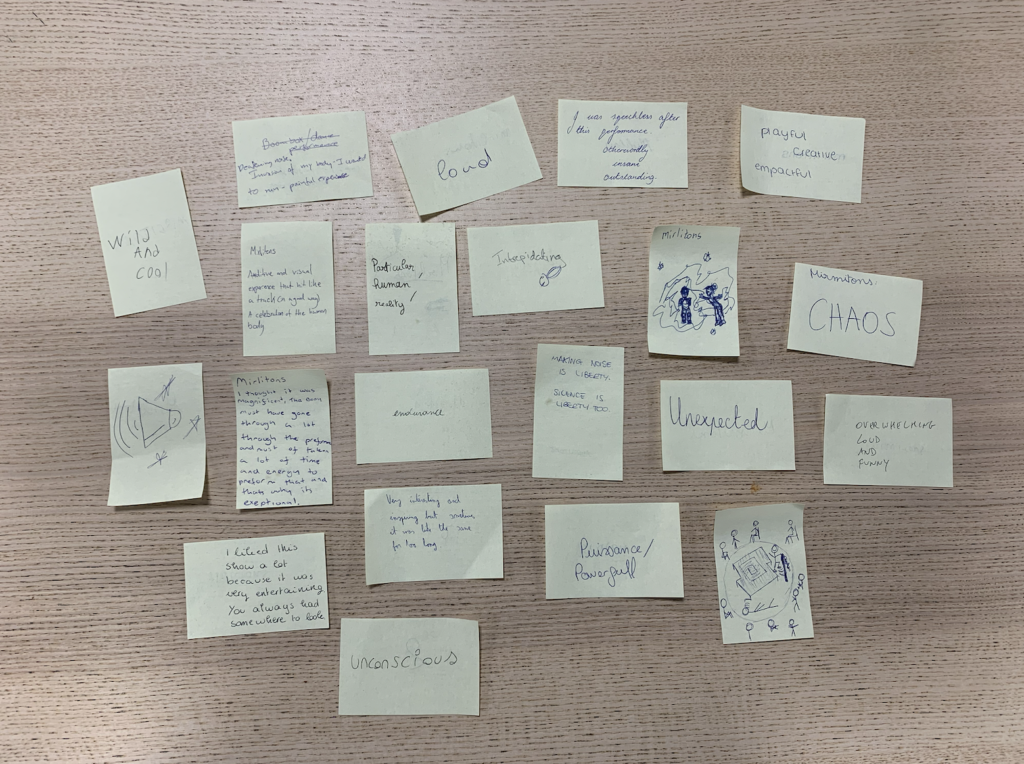 Wild
And
Cool
Deafening noise,
Invasion of my body. I wanted
to run - painful
loud
I was speechless after
this performance.
otherworldly
insani
outstanding.
playful
Creative
empactful
Mirlitons
Auditive and visual
experience that hit like
a truck (in a good way)
A celebration of the human
body
Particular/
human
reality/
Intrepidating
Mirlitons
Mirmitons:
CHAOS
Mirlitons
I thought it was
magnificent. The
must have gone
through a lot
through the
and must of taken
a lot of time
and energy to
preform that and
thats why its
exeptional.
endurance
MAKING NOISE
IS LIBERTY.
SILENCE IS
LIBERTY TOO.
Unexpected
OVERWHELMING
LOUD
AND
FUNNY
I liked this
show a lot
because it was
very entertaining
You always had
somewhere to look
Very intersting and
inspiring but
it was like the same
for too long
Puissance/
Powerfull
unconscious